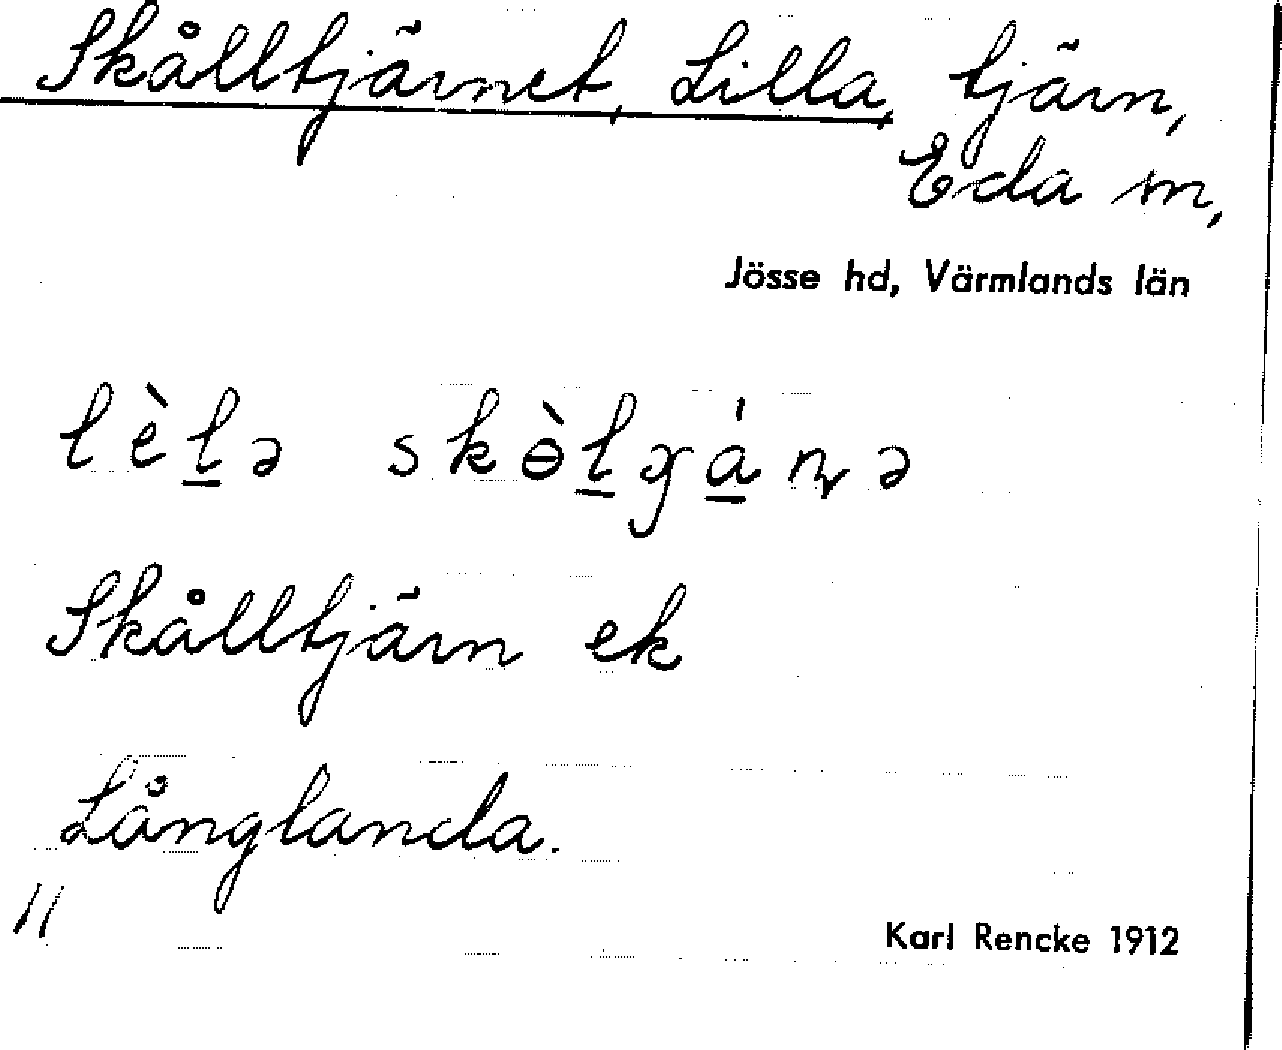 Skålltjärnet, Lilla, tjärn,
Eda sn,
Jösse hd, Värmlands län
lèl̲ə skɵ̀l̲ɣá̲ɳə
Skålltjärn ek
Långlanda.
11
Karl Rencke 1912